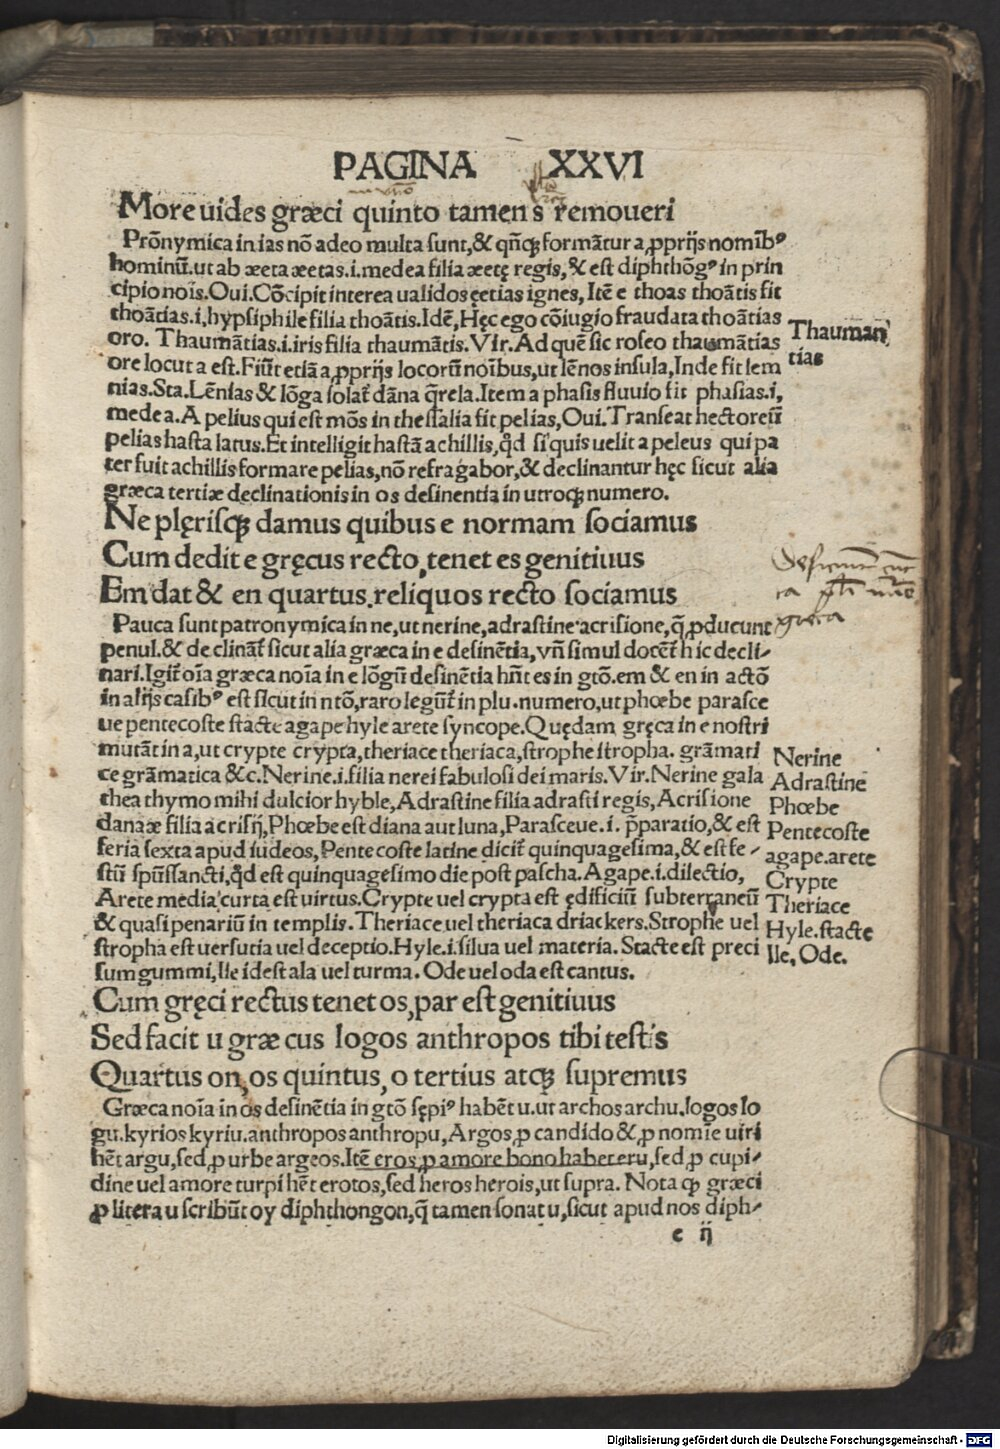 PAGINA XXVI
More uides græci quinto tamen s remoueri
Prōnymica in ias nō adeo multa sunt,& qñcꝙ formātur a ꝓprijs nomībꝰ
hominū.ut ab æeta æetas.i.medea filia æetę regis,& est diphthōgꝰ in prin
cipio nois.Oui.Cōcipit interea ualidos ęetias ignes, Itē e thoas thoātis fit
thoātias.i,hypsiphile filia thoātis.Idē,Hęc ego cōiugio fraudata thoātias
oro. Thaumātias.i.iris filia thaumātis.Vir.Ad quē sic roseo thaumātias
ore locuta est.Fiūt etiā a ꝓprijs locorū noībus,ut lēnos insula,Inde fit lem
nias.Sta.Lēnias & lōga solat̄ dāna q̄rela.Item a phasis fluuio fit phasias.i,
medea.A pelius qui est mōs in thessalia fit pelias,Oui.Transeat hectoreū
pelias hasta latus.Et intelligit hastā achillis,qd̄ si quis uelit a peleus qui pa
ter fuit achillis formare pelias,nō refragabor,& declinantur hęc sicut alia
græca tertiæ declinationis in os desinentia in utroqꝫ numero.
Ne plęrisqꝫ damus quibus e normam sociamus
Cum dedit e gręcus recto,tenet es genitiuus
Em dat & en quartus.reliquos recto sociamus
Pauca sunt patronymica in ne,ut nerine,adrastine acrisione,q̄ ꝓducunt
penul.& declināt̄ sicut alia græca in e desinētia,vñ simul docēt̄ hic decli-
nari.Igit̄ oīa græca noīa in e lōgū desinētia hñt es in gtō.em & en in actō
in alijs casibꝰ est sicut in ntō,raro legūt̄ in plu.numero,ut phœbe parasce
ue pentecoste stacte agape hyle arete syncope.Quędam gręca in e nostri
mutāt in a,ut crypte crypta,theriace theriaca,strophe stropha. grāmati
ce grāmatica &c.Nerine.i.filia nerei fabulosi dei maris.Vir.Nerine gala
thea thymo mihi dulcior hyble,Adrastine filia adrasti regis,Acrisione
danaæ filia acrisij,Phœbe est diana aut luna,Parasceue.i. p̄paratio,& est
feria sexta apud iudeos,Pentecoste latine dicit̄ quinquagesima,& est fe-
stū spūssancti,qd̄ est quinquagesimo die post pascha.Agape.i.dilectio,
Arete media curta est uirtus.Crypte uel crypta est ędificiū subterraneū
& quasi penariū in templis.Theriace uel theriaca driackers.Strophe uel
stropha est uersutia uel deceptio.Hyle.i.silua uel materia.Stacte est preci
sum gummi,Ile idest ala uel turma. Ode uel oda est cantus.
Cum gręci rectus tenet os,par est genitiuus
Sed facit u græcus logos anthropos tibi testis
Quartus on,os quintus,o tertius atqꝫ supremus
Græca noīa in os desinētia in gtō sępiꝰ habēt u.ut archos archu.logos lo
gu.kyrios kyriu.anthropos anthropu,Argos ꝓ candido & ꝓ nomīe uiri
hēt argu,sed ꝓ urbe argeos.Itē eros ꝓ amore bono habet eru,sed ꝓ cupi-
dine uel amore turpi hēt erotos,sed heros herois,ut supra. Nota ꝙ græci
ꝓ litera u scribūt oy diphthongon,q̄ tamen sonat u,sicut apud nos diph-
e ij
Thauman
tias
Nerine
Adrastine
Phœbe
Pentecoste
agape.arete
Crypte
Theriace
Hyle.stacte
Ile. Ode.
græca
Digitalisierung gefördert durch die Deutsche Forschungsgemeinschaft - DFG